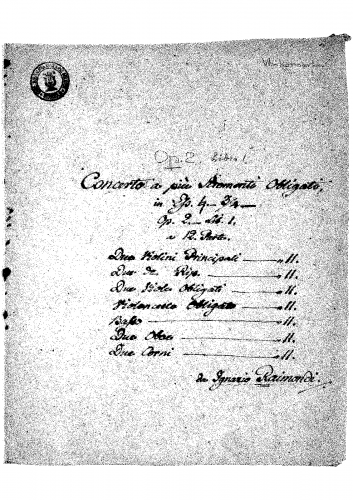 Op. 2. Libro 1.
Concerto a più Stromenti Obligati,
in
Op. 2 - Lib. 1.
a 12. Parti.
Due Violini Principali — 11.
Due de Rip. — 11.
Due Viole Obligati — 11.
Violoncello Obligato — 11.
Basso — 11.
Due Oboe — 11.
Due Corni — 11.
da Ignazio Raimondi.